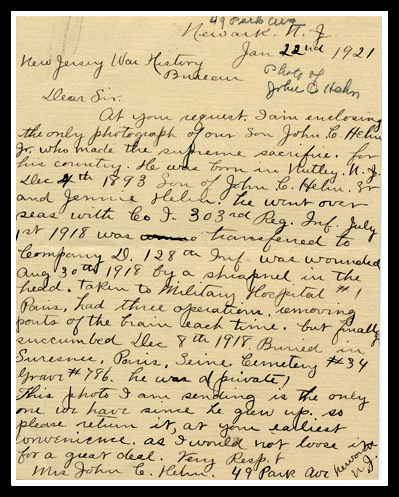 49 Park Ave
Newark. N. J.
Jan 22nd 1921
New Jersey War History
Bureau
Photo of
John C Hehn
Dear Sir.
At your request. I am enclosing
the only photograph of our Son John C. Hehn
Jr. who made the supreme sacrifice. for
his country. He was born in Nutley. N. J.
Dec 4th 1893 Son of John C. Hehn. Sr
and Jennie Hehn. he went over
seas with Co I. 303rd Reg. Inf. July
1st 1918 was transfered to
Company D. 128th Inf. was wounded
Aug 30th 1918 by a shrapnel in the
head. taken to Military Hospital #1
Paris, had three operations. removing
parts of the brain each time. but finally
succumbed Dec 8th 1918 Buried in
Suresnes, Paris, Seine Cemetery #34
Grave #786. he was a (private)
This photo I am sending is the only
one we have since he grew up. so
please return it, at your earliest
convenience. as I would not loose it
for a great deal. Very Resp.
Mrs John C. Hehn. 49 Park Ave Newark
N. J.